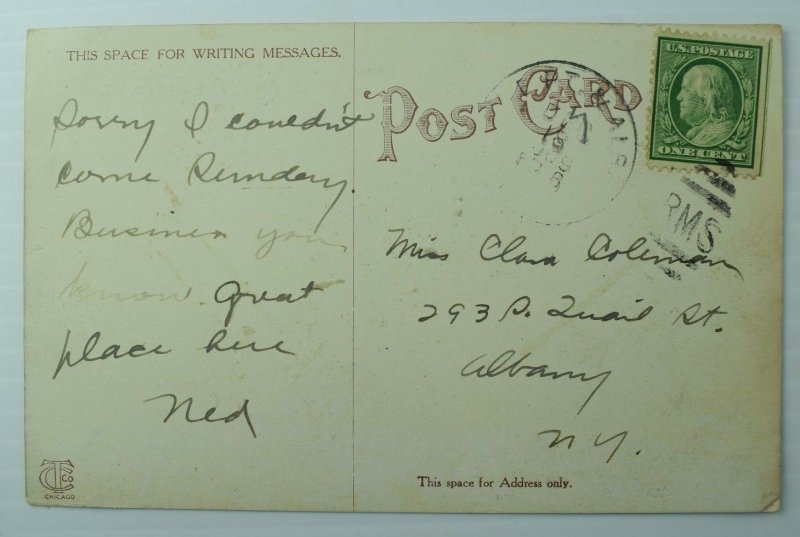 THIS SPACE FOR WRITING MESSAGES.
Sorry I couldn't
come Sunday.
Business you
know. Great
place here
Ned
CTCo
CHICAGO
POST CARD
U.S. POSTAGE
ONE CENT
RMS
Miss Clara Coleman
293 S. Quail St.
Albany
N.Y.
This space for Address only.